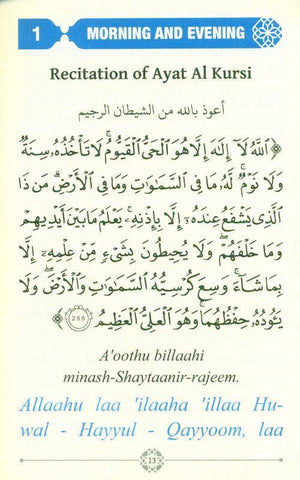 1 MORNING AND EVENING
Recitation of Ayat Al Kursi
أعوذ بالله من الشيطان الرجيم
﴿ٱللَّهُ لَآ إِلَٰهَ إِلَّا هُوَ ٱلْحَيُّ ٱلْقَيُّومُ ۚ لَا تَأْخُذُهُۥ سِنَةٌ
وَلَا نَوْمٌ ۚ لَّهُۥ مَا فِى ٱلسَّمَٰوَٰتِ وَمَا فِى ٱلْأَرْضِ ۗ مَن ذَا
ٱلَّذِى يَشْفَعُ عِندَهُۥٓ إِلَّا بِإِذْنِهِۦ ۚ يَعْلَمُ مَا بَيْنَ أَيْدِيهِمْ
وَمَا خَلْفَهُمْ ۖ وَلَا يُحِيطُونَ بِشَىْءٍ مِّنْ عِلْمِهِۦٓ إِلَّا
بِمَا شَآءَ ۚ وَسِعَ كُرْسِيُّهُ ٱلسَّمَٰوَٰتِ وَٱلْأَرْضَ ۖ وَلَا
يَـُٔودُهُۥ حِفْظُهُمَا ۚ وَهُوَ ٱلْعَلِىُّ ٱلْعَظِيمُ 255﴾
A'oothu billaahi
minash-Shaytaanir-rajeem.
Allaahu laa 'ilaaha 'illaa Hu-
wal - Hayyul - Qayyoom, laa
13